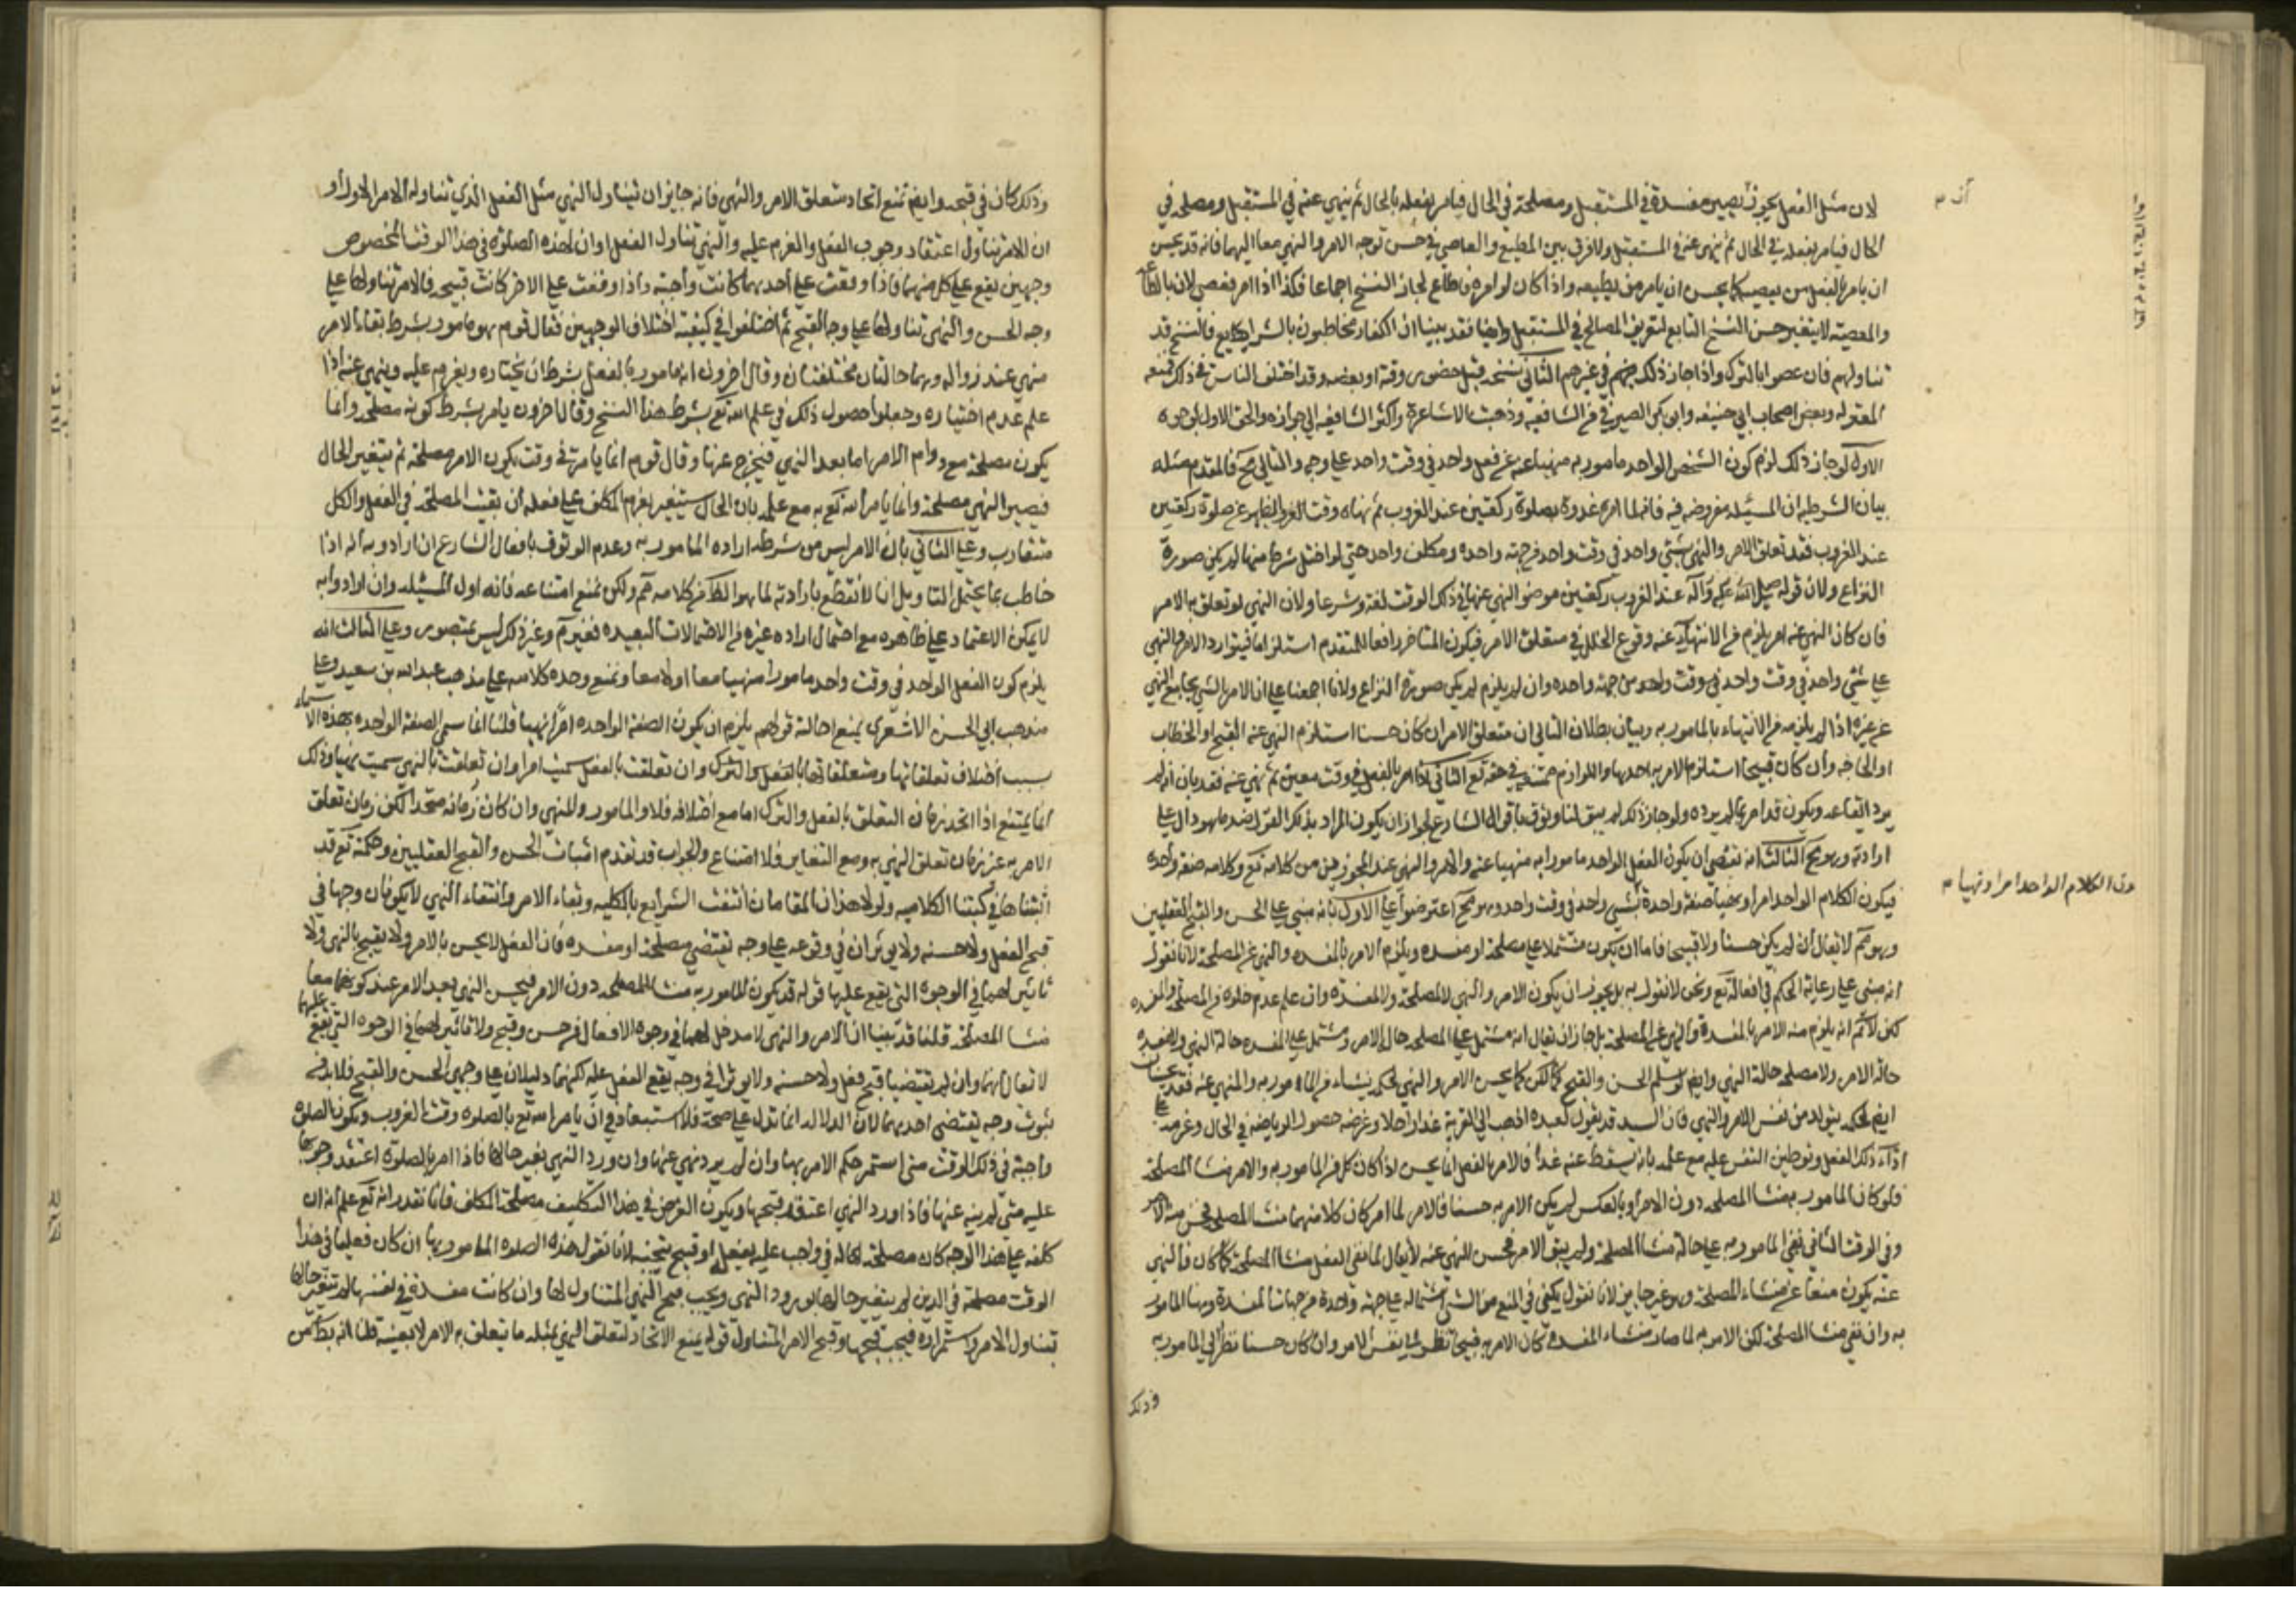 لان مثل الفعل يجوز تصير مفسدة في المستقبل ومصلحة في الحال فيامر بفعله بالحال ثم ينهي عنه في المستقبل ومصلحه في
الحال فيامر بفعله في الحال ثم ينهى عنه في المستقبل ولا فرق بين المطيع والعاصي في حسن توجه الامر والنهي معا اليهما فانه قد يحسن
ان يامر بالفعل من يعصيه كما يحسن ان يامر من يطيعه واذا كان لو امره فاطاع لجاز النسخ اجماعا فكذا اذا امر فعصى لان بالطاعة
والمعصية لا يتغير حسن النسخ التابع لتعريف المصالح في المستقبل وايضا فقد بينا ان الكفار مخاطبون بالشرايع فالنسخ قد
تناولهم فان عصوا بالترك واذا جاز ذلك فيهم في غيرهم الثاني نسخه قبل حضور وقته او بعضه وقد اختلف الناس في ذلك فمنعه
المعتزله وبعض اصحاب ابي حنيفه وابو بكر الصيرفي من الشافعيه وذهبت الاشاعرة واكثر الشافعيه الى جوازه والحق الاول لوجوه
الاول لو جاز ذلك لزم كون الشخص الواحد مامور به منهيا عنه عن فعل واحد في وقت واحد على وجه والتالي مح فالمقدم مثله
بيان الشرطيه ان المسئله مفروضه فيه فانه لما امره غدوة بصلوة ركعتين عند الغروب ثم نهاه وقت الظهر عن صلوة ركعتين
عند الغروب فقد تعلق الامر والنهي بشيء واحد في وقت واحد من جهته واحده ومكلف واحد حتى لو اختل شرط منها لم يكن صورة
النزاع ولان قوله صلى الله عليه وآله عند الغروب ركعتين موضع النهي عنها في ذلك الوقت لغة وشرعا ولان النهي لو تعلق به الامر
فان كان النهي عنه امر يلزم من الانتهاء عنه وقوع الخلل في متعلق الامر فيكون المتاخر رافعا للمتقدم استلزاما فيتوارد الامر والنهي
على شئ واحد في وقت واحد في وقت واحد من جهة واحده وان لم يلزم لم يكن صورة النزاع ولانا اجمعنا على ان الامر بالشئ يجامع النهي
عن غيره اذا لم يلزمه من الانتهاء بالمامور به وبيان بطلان التالي ان متعلق الامر ان كان حسنا استلزم النهي عنه القبح او الخطاب
او الحاجه وان كان قبيحا استلزم الامر به احدها واللوازم ممتنعة في حقه تع الثاني اذا امر بالفعل في وقت معين ثم نهى عنه فقد بان انه لم
يرد ايقاعه ويكون قد امر بما لم يرده ولو جاز ذلك لم يبق لنا وثوق باقوال الشارع لجواز ان يكون المراد بذكر القول ضد ما هو دال على
ارادته وهو مح الثالث انه يقضي ان يكون الفعل الواحد مامورا به منهيا عنه والامر والنهي عند المجوزين من كلامه تع وكلامه صفة واحده
فيكون الكلام الواحد امرا ونهيا صفة واحدة بشئ واحد في وقت واحد وهو مح اعترضوا على الاول بانه مبني على الحسن والقبح العقليين
وهو مم لا يقال ان لم يكن حسنا ولا قبيحا فاما ان يكون مشتملا على مصلحة او مفسده ويلزم الامر بالمفسده والنهي عن المصلحة لانا نقول
انه مبني على رعاية الحكم في افعاله تع ونحن لا نقول به بل يجوز ان يكون الامر والنهي لا لمصلحة ولا لمفسدة وان علم عدم خلوه من المصلحة والمفسده
لكن لا نم انه يلزم منه الامر بالمفسدة والنهي عن المصلحة بل جاز ان يقال انه مشتمل على المصلحه حال الامر ومشتمل على المفسده حالة النهي ولا مفسده
حالة الامر ولا مصلحه حالة النهي وايض لو سلم الحسن والقبح لكن كما يحسن الامر والنهي لحكم ينشاء من المامور به والمنهي عنه فقد يحسنان
ايض لحكمة يتولد من نفس الامر والنهي فان السيد قد يقول لعبده اذهب الى القرية غدا راجلا وغرضه حصول الرياضه في الحال وغرضه على
اداء ذلك الفعل وتوطين النفس عليه مع علمه بانه يسقط عنه غدا فالامر بالفعل انما يحسن اذا كان كل من المامور به والامر منشا المصلحة
فلو كان المامور به منشا المصلحه دون الامر او بالعكس لم يكن الامر به حسنا فالامر لما امر كان كلا منهما منشا المصلحه فحسن منه الامر
وفي الوقت الثاني بقي المامور به على حالة منشا المصلحة ولم يبق الامر فحسن النهي عنه لا يقال لما بقي الفعل منشا المصلحة كما كان فالنهي
عنه يكون منعا عن منشاء المصلحة وهو غير جايز لانا نقول يكفي في المنع من الشئ اشتماله على جهة واحدة من جهات المفسدة وههنا المامور
به وان بقي منشا المصلحة لكن الامر به لما صار منشاء المفسدة كان الامر به قبيحا نظرا الى نفس الامر وان كان حسنا نظرا الى المامور به
وذلك
ون الكلام الواحد امرا ونهيا م
وذلك كاف في قبحه وايض نمنع اتحاد متعلق الامر والنهي فانه جايز ان يتناول النهي مثل الفعل الذي تناوله الامر الاول او
ان الامر يتناول اعتقاد وجوب الفعل والعزم عليه والنهي تناول الفعل او ان لهذه الصلوة في هذا الوقت المخصوص
وجهين يقع على كل منهما فاذا وقعت على احدهما كانت واجبة واذا وقعت على الاخر كانت قبيحه فالامر تناولها على
وجه الحسن والنهي تناولها على وجه القبح ثم اختلفوا في كيفية اختلاف الوجهين فقال قوم هو مامور بشرط بقاء الامر
منهي عند زواله وهما حالتان مختلفتان وقال اخرون انه مامور بالفعل بشرط ان يختاره ويعزم عليه وينهى عنه اذا
علم عدم اختياره وجعلوا حصول ذلك في علم الله تع بشرط هذا النسخ وقال اخرون يامر بشرط كونه مصلحة وانما
يكون مصلحة مع دوام الامر اما بعد النهي فيخرج عنها وقال قوم انما يامر في وقت يكون الامر مصلحة ثم يتغير الحال
فيصير النهي مصلحة وانما يامر الله تع به مع علمه بان الحال ستتغير ليعزم المكلف على فعله ان بقيت المصلحة في الفعل والكل
متقارب وعلى الثاني بان الامر ليس من شرطه اراده المامور به وعدم الوثوق باقوال الشارع ان ارادوا به انه اذا
خاطب بما يحتمل التاويل انا لا نقطع بارادته لما هو الظ من كلامه فمم ولكن نمنع امتناعه فانه اول المسئله وان ارادوا به
لا يمكن الاعتماد على ظاهره مع احتمال اراده غيره من الاحتمالات البعيده فغير لازم وغير ذلك ليس بمتصور وعلى الثالث انه
يلزم كون الفعل الواحد في وقت واحد مامورا منهيا معا او لا معا ونمنع وحده كلامه على مذهب عبد الله بن سعيد وعلى
مذهب ابي الحسن الاشعري نمنع احالة قولهم يلزم ان يكون الصفة الواحده امرا نهيا قلنا انما سمى الصفة الواحده بهذه الاسماء
بسبب اختلاف تعلقاتها ومتعلقاتها بالفعل والترك وان تعلقت بالفعل سميت امرا وان تعلقت بالنهي سميت نهيا وذلك
انما يمتنع اذا اتحد زمان التعلق بالفعل والترك اما مع اختلافه فلا والمامور والمنهي وان كان زمانه متحدا لكن زمان تعلق
الامر به غير زمان تعلق النهي به ومع التغاير فلا امتناع والجواب قد تقدم اثبات الحسن والقبح العقليين وحكمته تع قد
اثبتناها في كتبنا الكلاميه ولولا هذان المقامان انتفت الشرايع بالكليه وبقاء الامر وانتفاء النهي لا يكونان وجها في
قبح الفعل ولا حسنه ولا يوثران في وقوعه على وجه يقتضي مصلحة او مفسده فان الفعل لا يحسن بالامر ولا يقبح بالنهي ولا
تاثير لهما في الوجوه التي يقع عليها قوله قد يكون المامور به منشا المصلحه دون الامر فيحسن النهي بعد الامر عند كونهما معا
منشا المصلحة قلنا قد بينا ان الامر والنهي لا مدخل لهما في وجوه الافعال من حسن وقبح ولا تاثير لهما في الوجوه التي يقع عليها
لا يقال انهما وان لم يقتضيا قبح فعل ولا حسنه ولا يوثرا في وجه يقع الفعل عليه لكنهما دليلان على وجهي الحسن والقبح فلا بد من
ثبوت وجه يقتضي احدهما لان الدلاله انما تدل على صحة فلا استبعاد في ان يامر الله تع بالصلوه وقت الغروب ويكون الصلوه
واجبة في ذلك الوقت متى استمر حكم الامر بها وان لم يرد نهي عنها وان ورد النهي تغير حالها فاذا امر بالصلوة اعتقد وجوبها
عليه متى لم ينه عنها فاذا ورد النهي اعتقد قبحها ويكون الغرض في هذا التكليف مصلحة المكلف فانا نقدر انه تع علم انه ان
كلفه على هذا الوجه كان مصلحة لحاله في واجب عليه يفعله او قبيح يتجنبه لانا نقول هذه الصلوه المامور بها ان كان فعلها في هذا
الوقت مصلحة في الدين لم يتغير حالها بورود النهي ويجب قبح النهي المتناول لها وان كانت مفسدة في نفسها لم يتغير حالها
بتناول الامر واستمراره فيجب قبحها وقبح الامر المتناول قوله يمنع الاتحاد لتعلق النهي بمثله ما يتعلق به الامر لا بعينه قلنا انه بط من